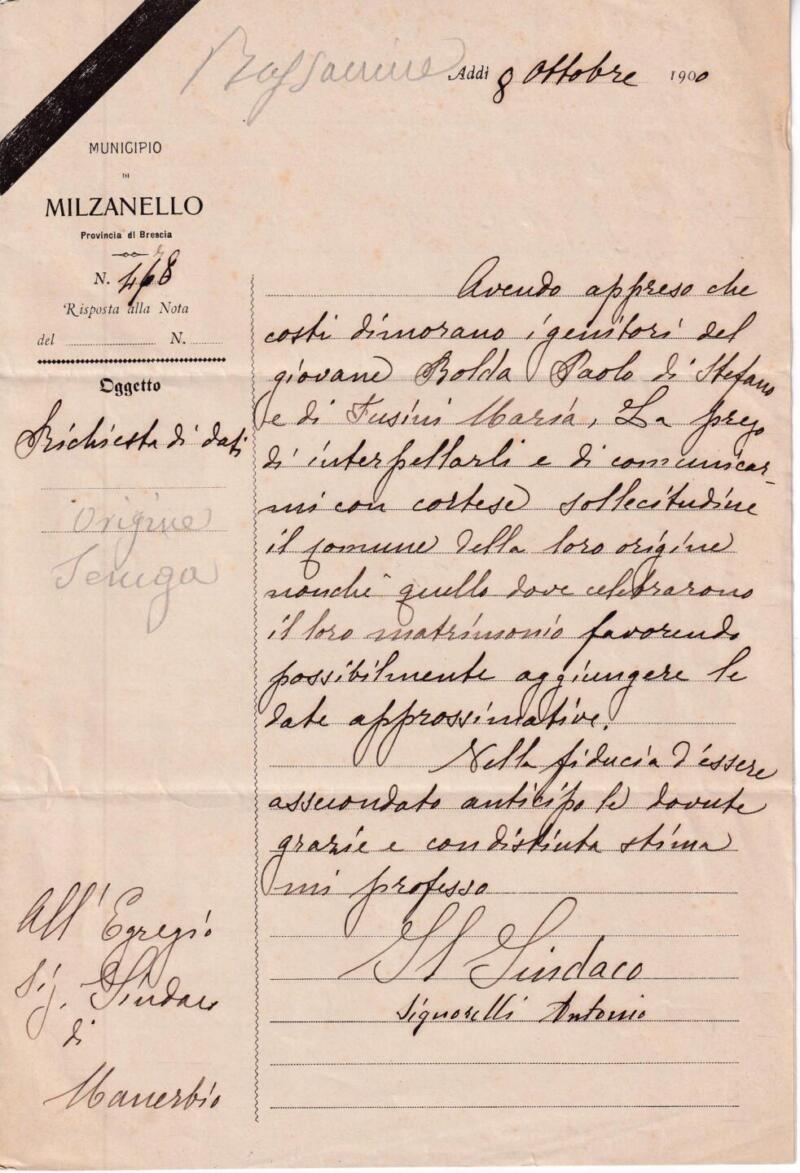 Addì 8 Ottobre 1900
MUNICIPIO
DI
MILZANELLO
Provincia di Brescia
N. 468
Risposta alla Nota
del N.
Oggetto
Richiesta di dati
Origine
Seniga
Avendo appreso che
costì dimorano i genitori del
giovane Bolda Paolo di Stefano
e di Fusini Maria, La prego
di interpellarli e di comunicar-
mi con cortese sollecitudine
il comune della loro origine
nonchè quello dove celebrarono
il loro matrimonio favorendo
possibilmente aggiungere le
date approssimative.
Nella fiducia d'essere
assecondato anticipo le dovute
grazie e con distinta stima
mi professo
Il Sindaco
Signorelli Antonio
All'Egregio
Sig. Sindaco
di
Manerbio